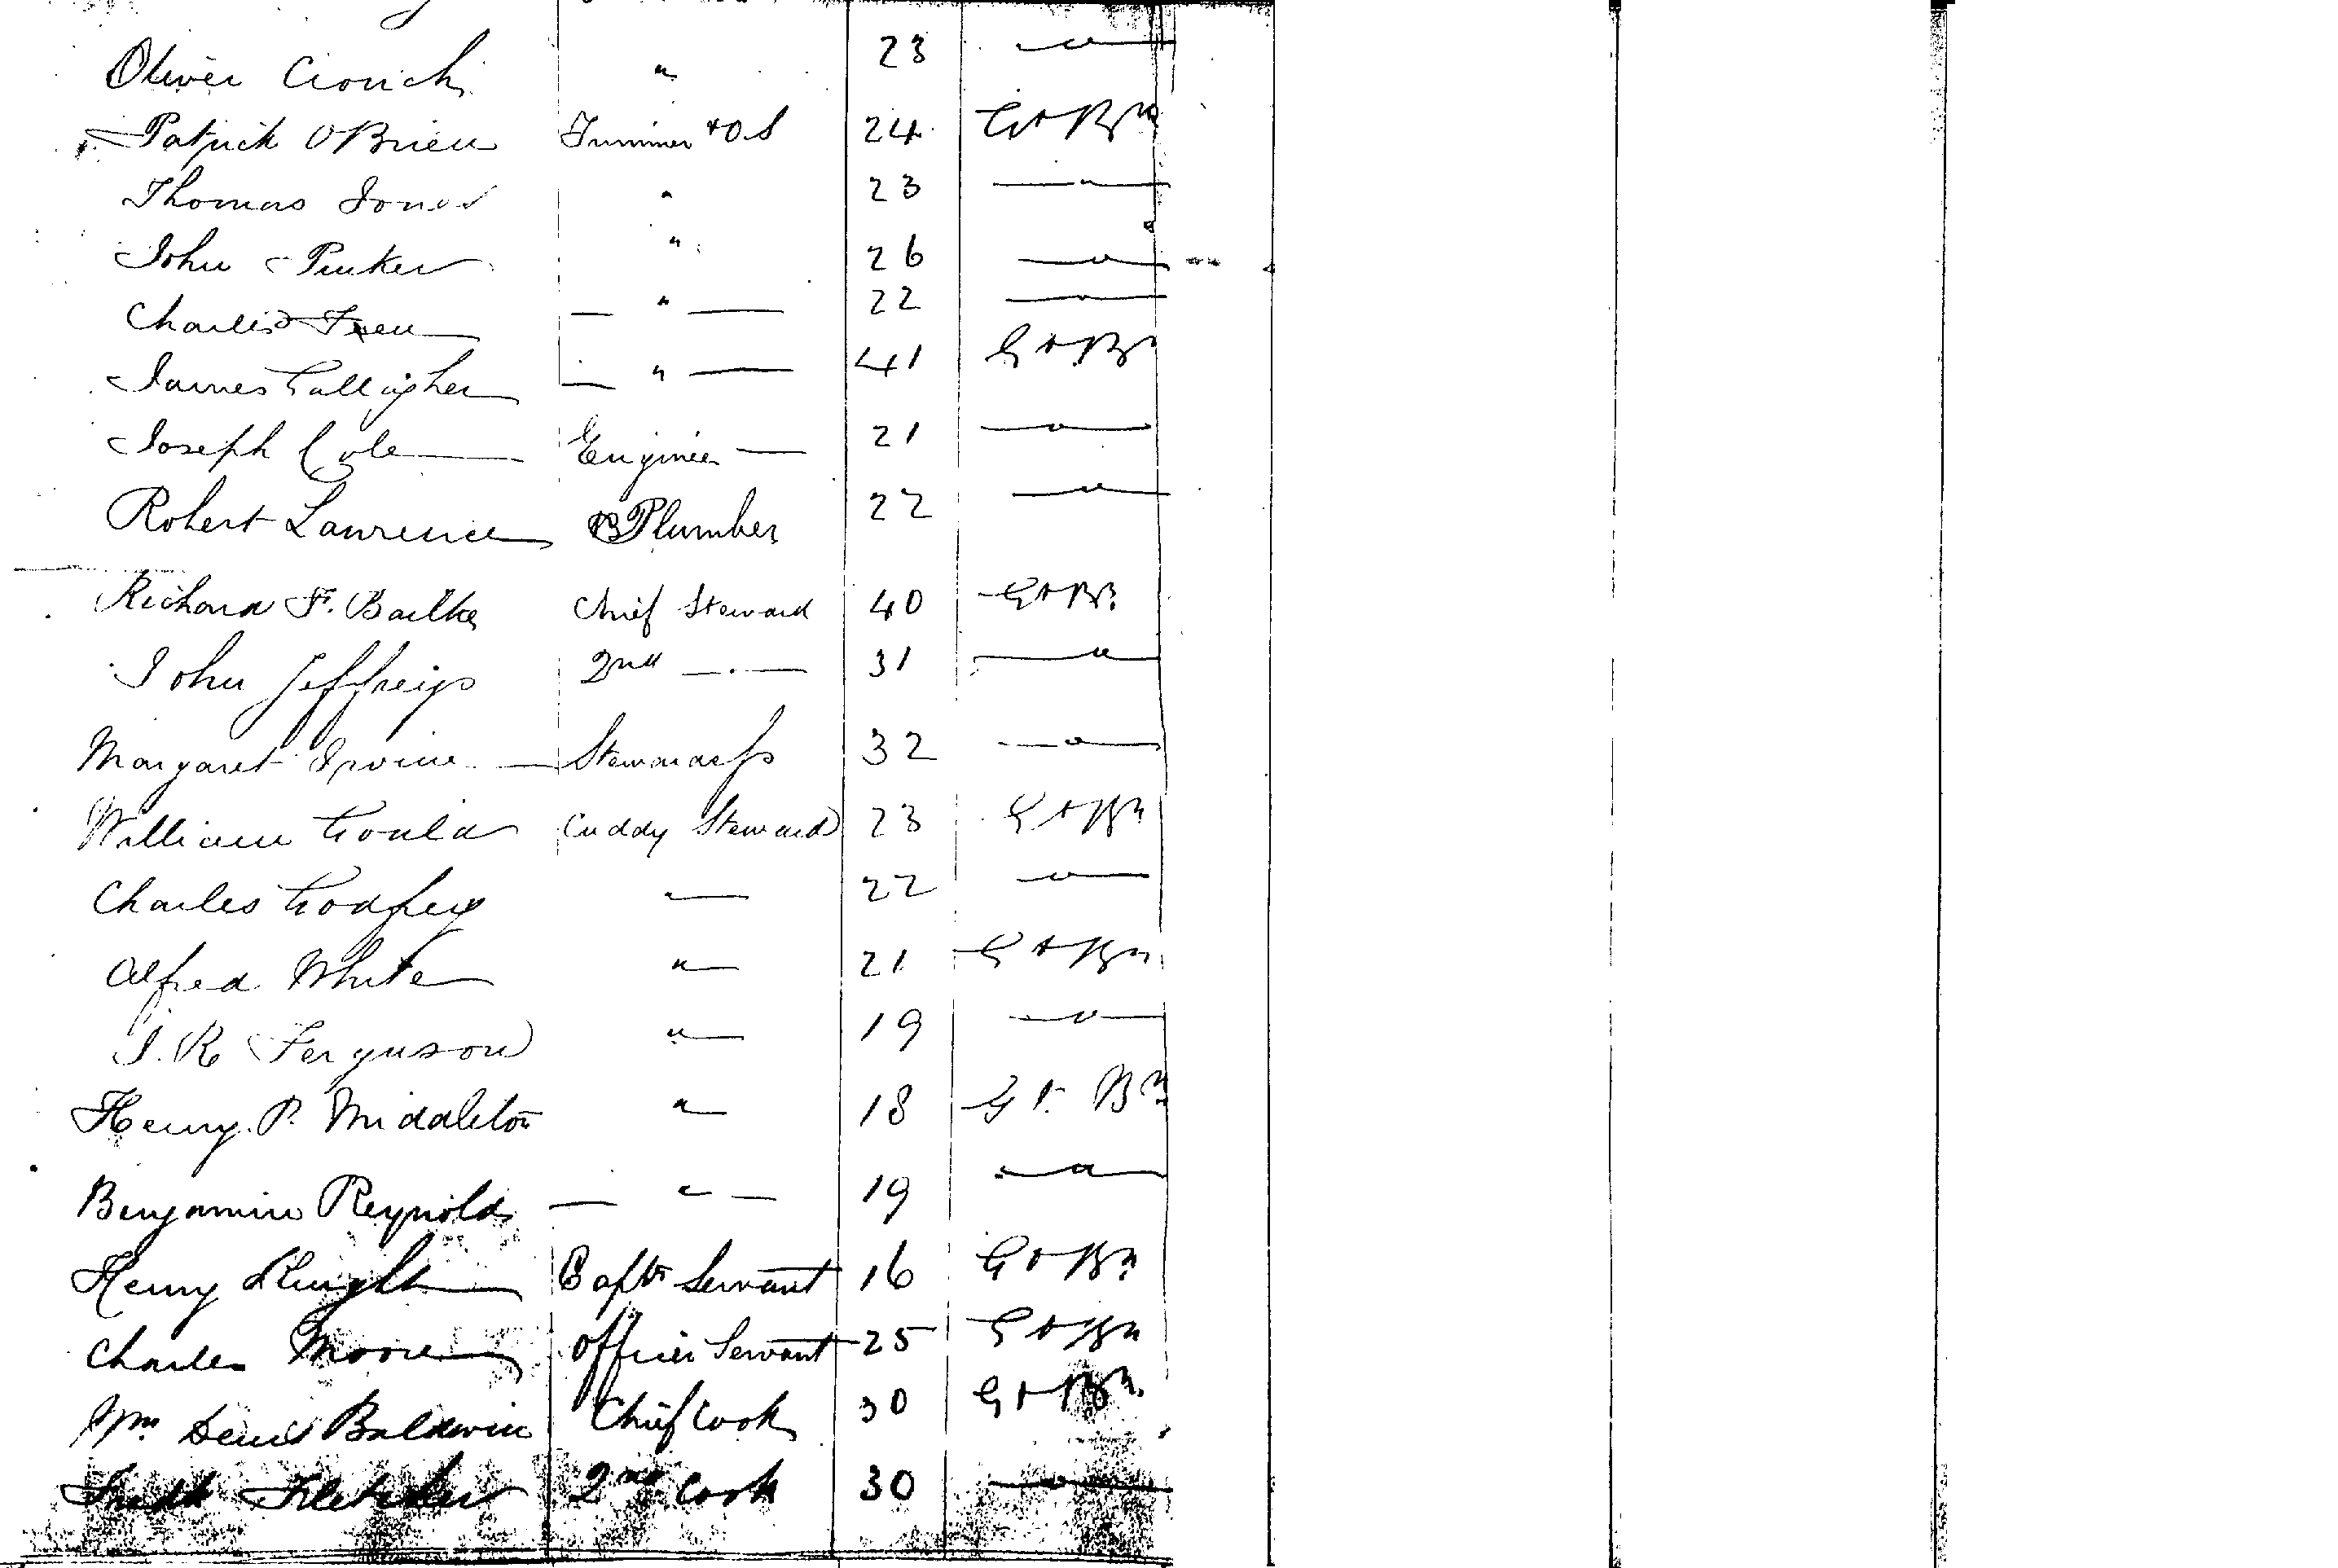 Oliver Crouch " 23 — " —
Patrick O'Brien Trimmer & O.S 24 Gt Bn
Thomas Jones " 23 — " —
John Punker " 26 — " —
Charles Treu — " — 22 — " —
James Gallagher — " — 41 Gt Bn
Joseph Cole Engineer — 21 — " —
Robert Lawrence Plumber 22 — " —
Richard F. Bailke Chief Steward 40 Gt Bn
John Jeffreys 2nd — " — 31 — " —
Margaret Irvine — Stewardess 32 — " —
William Gould Cuddy Steward 23 Gt Bn
Charles Godfrey " — 22 — " —
Alfred White " — 21 Gt Bn
J. R Ferguson " — 19 — " —
Henry P. Middleton " — 18 Gt. Bn
Benjamin Reynolds — " — 19 — " —
Henry Capts Servant 16 Gt Bn
Charles Moore Officers Servant 25 Gt Bn
Wm Denis Baldwin Chief Cook 30 Gt Bn
Fredk Fletcher 2nd Cook 30 — " —